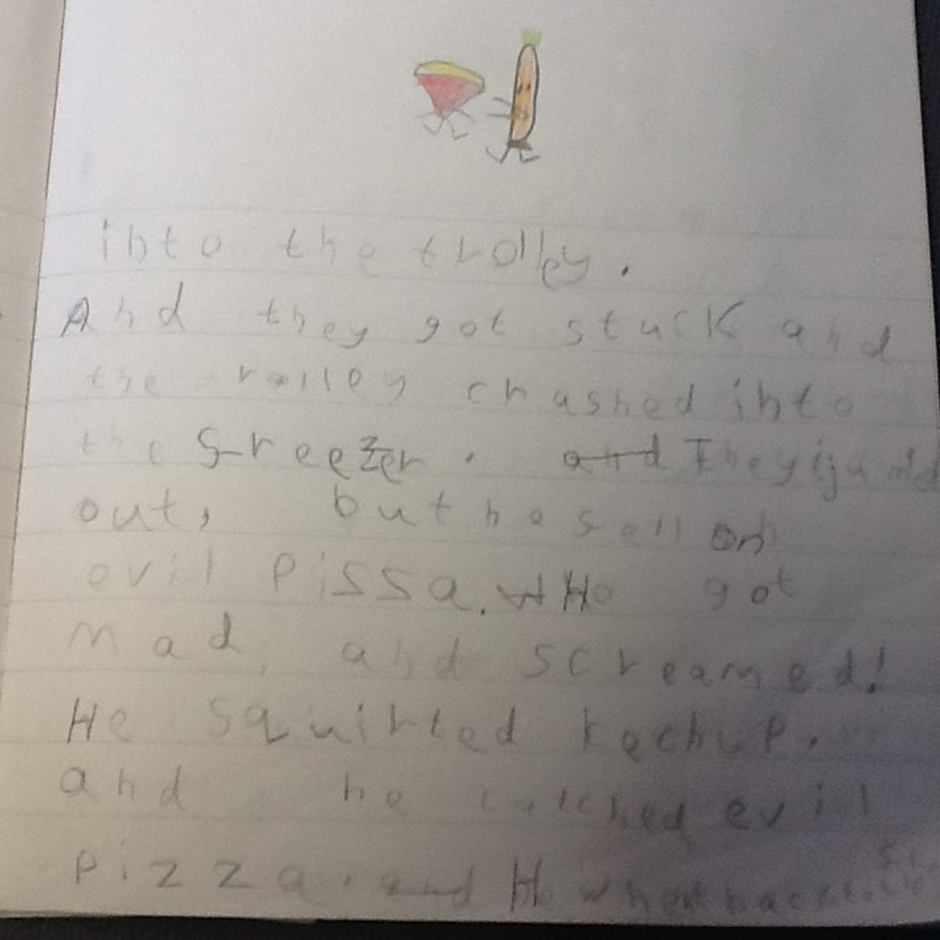 into the trolley.
And they got stuck and
the trolley crashed into
the freezer. and They jumd
out, but he fell on
evil pissa. wHo got
mad, and screamed!
He squirted kechup.
and he catched evil
pizza. and He whent back